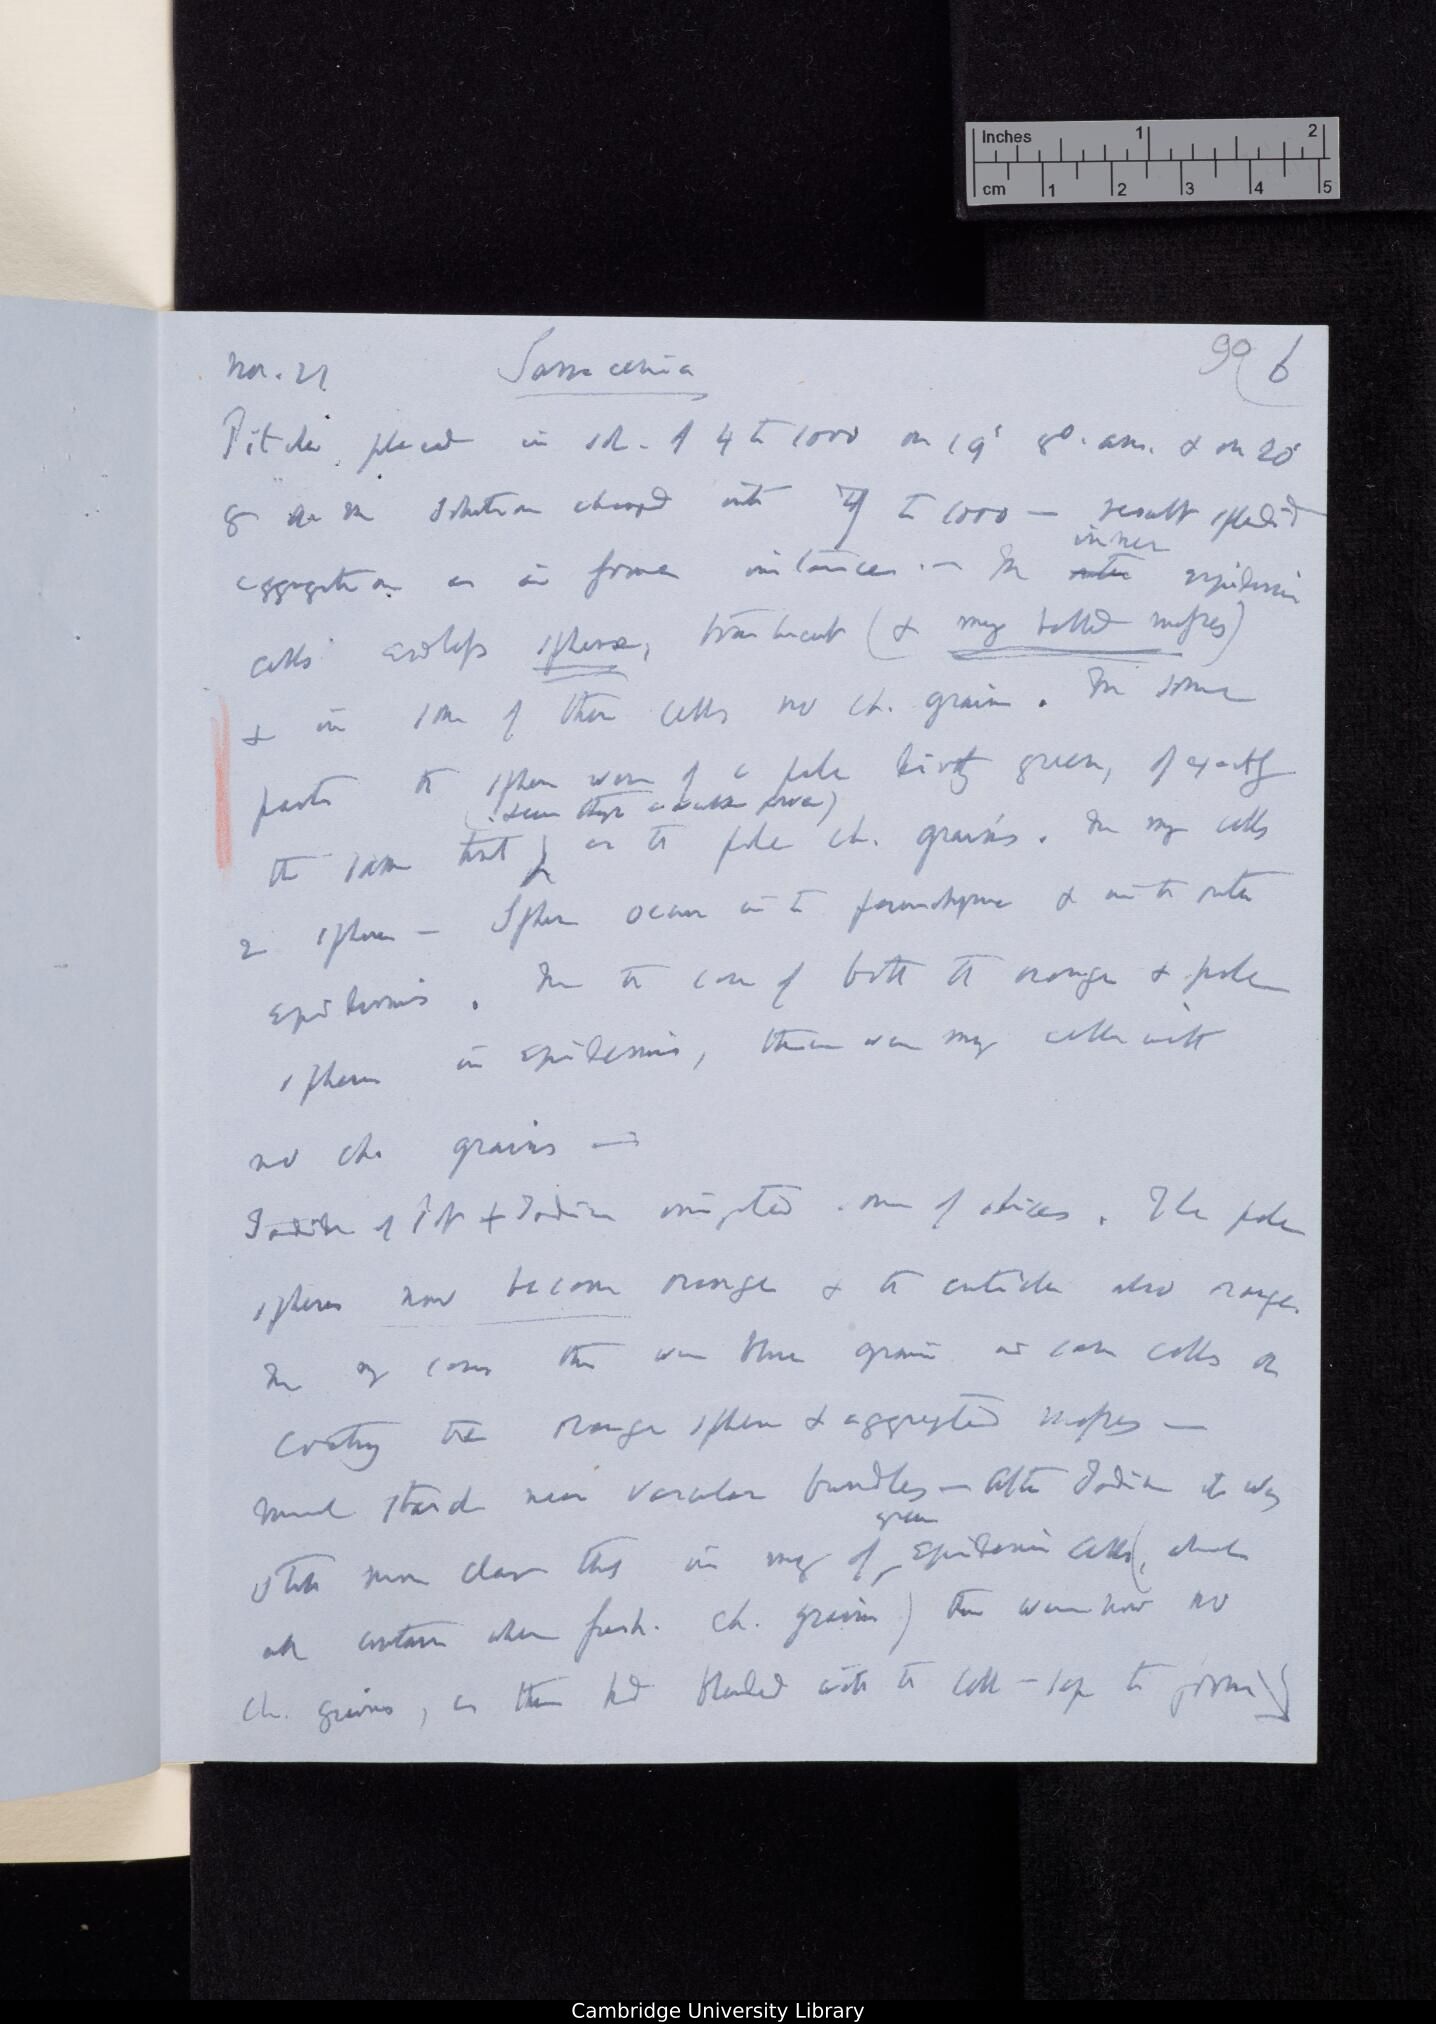 Inches 1 2
cm 1 2 3 4 5
Nov. 21 Sarracenia 99 (6
Pitcher placed in sol. of 4 to 1000 on 19th 8°. a.m. & on 20th
8 a m solution changed into 7 to 1000 — result splendid
aggregation as in former instances. — In outer inner epidermic
cells endless spheres, translucent (& many balled masses)
& in some of these cells no ch. grains. In some
parts the spheres were of a pale dirty green, of exactly
(seen thro' a water
the same tint as the pale ch. grains. In many cells
2 spheres — Spheres occur in the parenchyma & in the outer
epidermis. In the case of both the orange & pale
spheres in epidermis, there were many cells with
no ch. grains —
Iodide of Pot & Iodine irrigated some of slices. The pale
spheres now become orange & the cuticle also orange.
In many cases there were blue grains in same cells as
contg the orange spheres & aggregated masses —
Much starch near vascular bundles — After Iodine it was
still more clear that in many of green epidermic cells (, which
all contain when fresh. ch. grains) there were now no
ch. grains, as these had blended with the cell-sap to form
Cambridge University Library